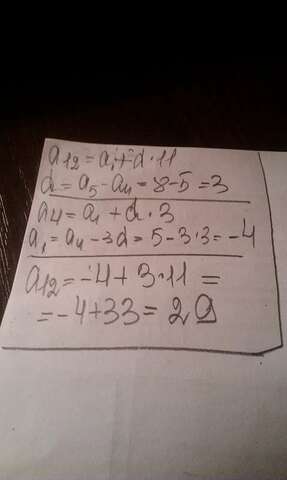 a12 = a1 + d · 11
d = a5 - a4 = 8 - 5 = 3
a4 = a1 + d · 3
a1 = a4 - 3d = 5 - 3·3 = -4
a12 = -4 + 3·11 =
= -4 + 33 = 29